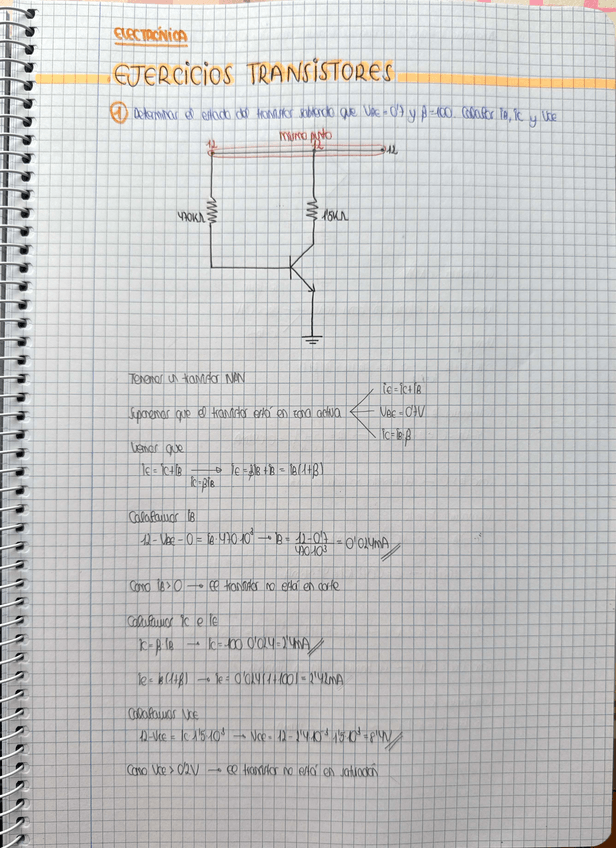 ELECTRÓNICA
EJERCICIOS TRANSISTORES
① Determinar el estado del transistor sabiendo que VBE = 0'7 y β=100. Calcular IB, IC y VCE
mismo punto
12 12 12
470KΩ 1'5KΩ
Tenemos un transistor NPN
IE = IC + IB
Suponemos que el transistor está en zona activa VBE = 0'7V
IC = IB·β
Vemos que
IE = IC + IB → IE = βIB + IB = IB(1+β)
IC = βIB
Calculamos IB
12 - VBE - 0 = IB·470·10³ → IB = 12-0'7 / 470·10³ = 0'024mA
Como IB > 0 → el transistor no está en corte
Calculamos IC e IE
IC = β·IB → IC = 100·0'024 = 2'4mA
IE = IB(1+β) → IE = 0'024(1+100) = 2'42mA
Calculamos VCE
12 - VCE = IC·1'5·10³ → VCE = 12 - 2'4·10⁻³·1'5·10³ = 8'4V
Como VCE > 0'2V → el transistor no está en saturación